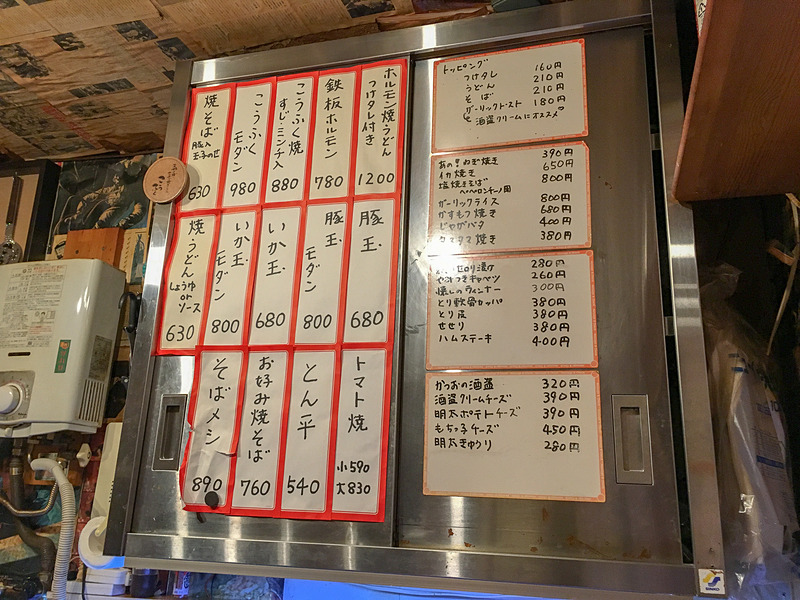 ホルモン焼うどん
つけタレ付き
1200
鉄板ホルモン
780
こうふく焼
すじ・ミンチ入
880
こうふく
モダン
980
焼そば
豚入
玉子のせ
630
豚玉
680
豚玉
モダン
800
いか玉
680
いか玉
モダン
800
焼うどん
しょうゆ
or
ソース
630
トマト焼
小590
大830
とん平
540
お好み焼そば
760
そばメシ
890
トッピング
つけタレ 160円
うどん 210円
そば 210円
ガーリックトースト 180円
酒盗クリームにオススメ♡
ねぎ焼き 390円
イカ焼き 650円
塩焼きそば 800円
ペペロンチーノ風
ガーリックライス 800円
かすもつ焼き 680円
じゃがバタ 400円
タマタマ焼き 380円
280円
キャベツ 260円
懐しのウィンナー 300円
とり軟骨カッパ 380円
とり皮 380円
せせり 380円
ハムステーキ 400円
かつおの酒盗 320円
酒盗クリームチーズ 390円
明太ポテトチーズ 390円
もちっ子チーズ 450円
明太きゅうり 280円
SINKO